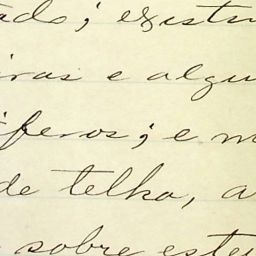 ado; existi
iras e algu
iferos; e m
de telha, a
sobre este